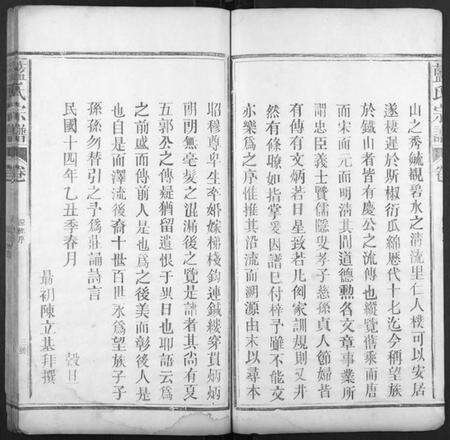 山之秀毓觀碧水之清流里仁人樸可以安居
遂棲遲於斯椒衍瓜綿歷代十七迄今稱望族
於鐵山者皆有慶公之流傳也縱覽偕乘而唐
而宋而元而明清其間道德勲名文章事業所
謂忠臣義士賢儒隱叟孝子慈孫貞人節婦皆
有傳有文炳若日星致若凡例家訓規則又井
然有條瞭如指掌茲因譜已付梓予雖不能交
亦樂為之序惟推其沿流而溯源由末以尋本
昭穆尊卑生卒婚嫁梯棧鈎連鍼縷穿貫炳炳
朗朗無毫髮之混漏後之覽是譜者其尚有夏
五郭公之傳疑猶留遺恨于異日也耶語云為
之前盛而傳前人是也為之後美而彰後人是
也自是而澤流後裔十世百世永為望族子子
孫孫勿替引之予為莊誦詩言
民國十四年乙丑季春月 穀日
最初陳立基拜撰
藍氏宗譜 卷
藍氏宗譜 卷